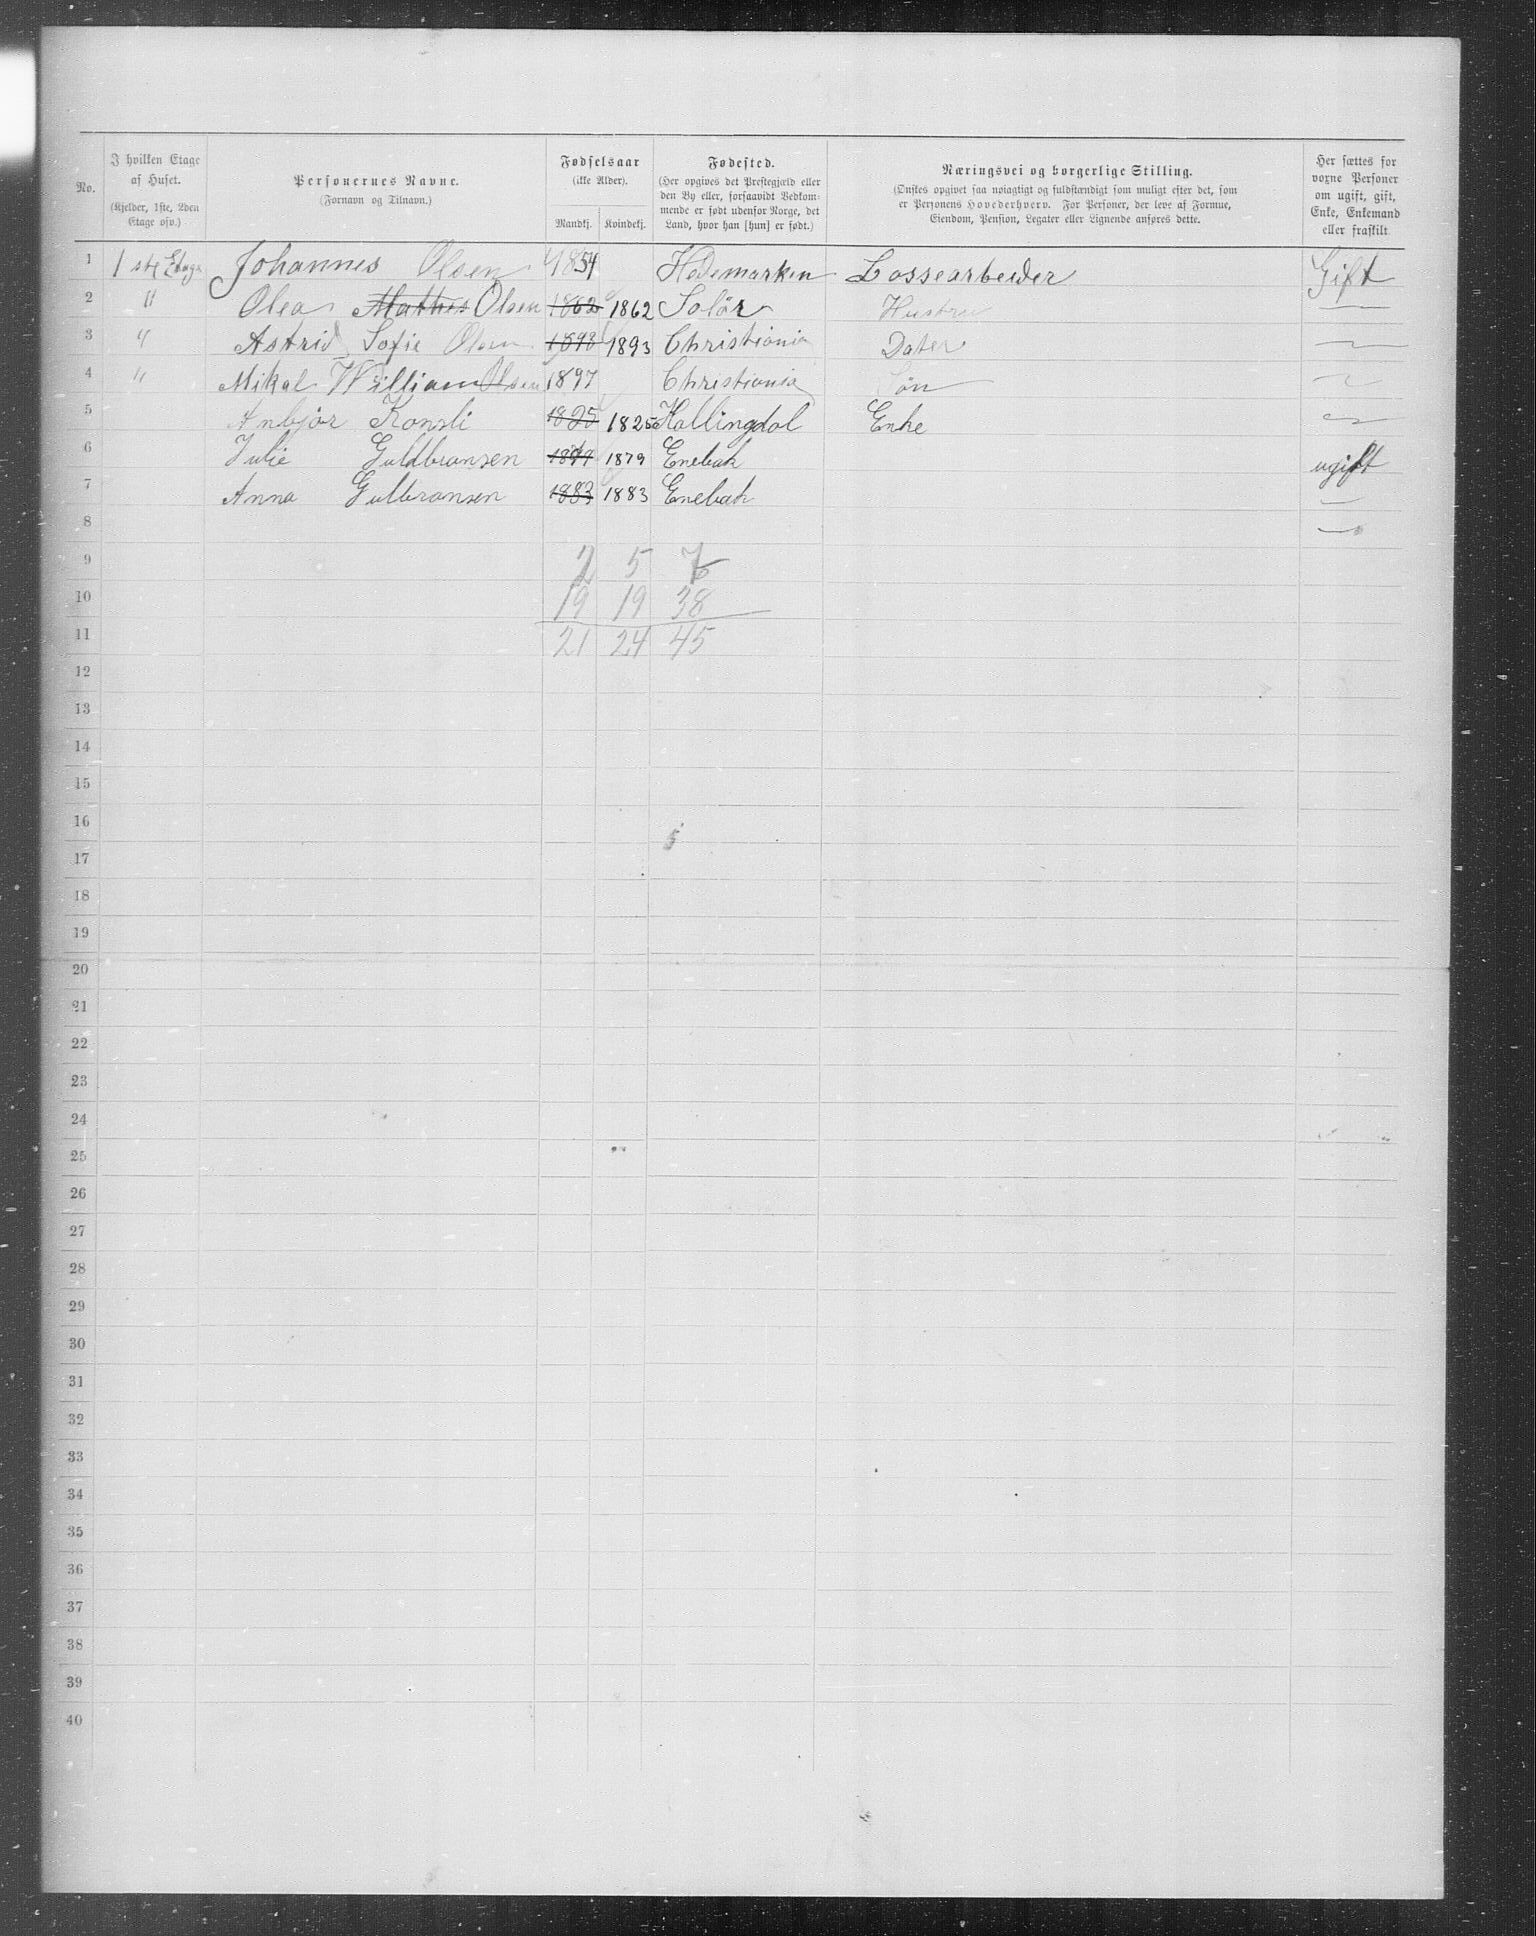 No.
I hvilken Etage
af Huset.
(Kjelder, 1ste, 2den
Etage osv.)
Personernes Navne.
(Fornavn og Tilnavn.)
Fødselsaar
(ikke Alder).
Mandkj. Kvindekj.
Fødested.
(Her opgives det Prestegjæld eller
den By eller, forsaavidt Vedkom-
mende er født udenfor Norge, det
Land, hvor han [hun] er født.)
Næringsvei og borgerlige Stilling.
(Ønskes opgivet saa nøiagtigt og fuldstændigt som muligt efter det, som
er Personens Hovederhverv. For Personer, der leve af Formue,
Eiendom, Pension, Legater eller Lignende anføres dette.
Her sættes for
voxne Personer
om ugift, gift,
Enke, Enkemand
eller fraskilt.
1 1 ste Etage Johannes Olsen 1854 Hedemarken Lossearbeider Gift
2 " Olea Mathes Olsen 1862 1862 Solør Hustru —
3 " Astrid Sofie Olsen 1893 1893 Christiania Dater —
4 " Mikal William Olsen 1897 Christiania Søn —
5 Anbjør Kronsli 1825 1825 Hallingdal Enke —
6 Julie Guldbransen 1879 Enebak ugift
7 Anna Gulbransen 1883 1883 Enebak —
8 —
9 2 5 7
10 19 19 38
11 21 24 45
12
13
14
15
16
17
18
19
20
21
22
23
24
25
26
27
28
29
30
31
32
33
34
35
36
37
38
39
40